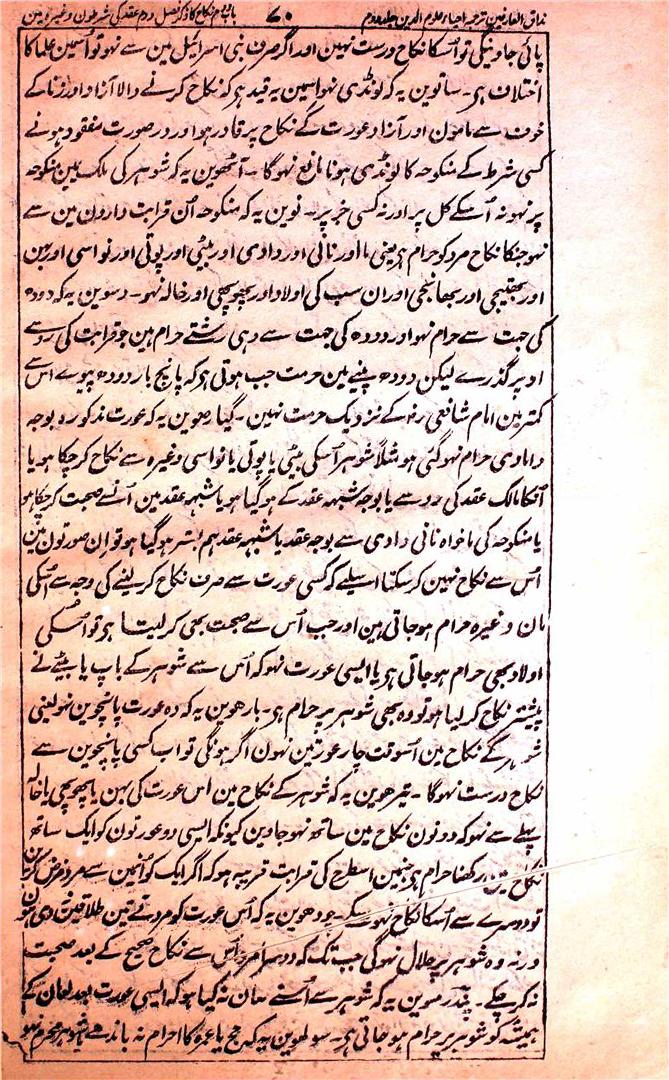 مذاق العارفین ترجمہ احیاء علوم الدین جلد دوم ۶۰ باب دوم نکاح کا ذکر فصل دوم عقد کی شرطون وغیرہ مین
پائی جاوینگی تو اُسکا نکاح درست نہین اور اگر صرف بنی اسرائیل مین سے نہو تو اُسمین علما کا
اختلاف ہی۔ ساتوین یہ کہ لونڈی نہو اسمین یہ قید ہی کہ نکاح کرنے والا آزاد اور زنا کے
خوف سے مامون اور آزاد عورت کے نکاح پر قادر ہو اور در صورت مفقود ہونے
کسی شرط کے منکوحہ کا لونڈی ہونا مانع نہوگا۔ آٹھوین یہ کہ شوہر کی ملک مین منکوحہ
پر نہو نہ اُسکے کل پر اور نہ کسی جز پر۔ نوین یہ کہ منکوحہ اُن قرابت دارون مین سے
نہو جنکا نکاح مرد کو حرام ہی یعنی ما اور نانی اور دادی اور بیٹی اور پوتی اور نواسی اور بہن
اور بھتیجی اور بھانجی اور ان سب کی اولاد اور پھوپھی اور خالہ نہو۔ دسوین یہ کہ دودھ
کی جہت سے حرام نہو اور دودھ کی جہت سے وہی رشتے حرام ہین جو قرابت کی رو سے
اوپر گذرے لیکن دودھ پینے مین حرمت جب ہوتی ہی کہ پانچ بار دودھ پیوے اس سے
کمتر مین امام شافعی رح کے نزدیک حرمت نہین۔ گیارھوین یہ کہ عورت مذکورہ بوجہ
دامادی حرام نہو گئی ہو مثلاً شوہر اُسکی بیٹی یا پوتی یا نواسی وغیرہ سے نکاح کر چکا ہو یا
اُنکا مالک عقد کی رو سے یا بوجہ شبہہ عقد کے ہو گیا ہو یا شبہہ عقد مین اُنسے صحبت کر چکا ہو
یا منکوحہ کی ما خواہ نانی دادی سے بوجہ عقد یا شبہہ عقد ہم بستر ہو گیا ہو تو ان صورتون مین
اُس سے نکاح نہین کر سکتا اسلیے کہ کسی عورت سے صرف نکاح کر لینے کی وجہ سے اُسکی
مان وغیرہ حرام ہو جاتی ہین اور جب اُس سے صحبت بھی کر لیتا ہی تو اُسکی
اولاد بھی حرام ہو جاتی ہی یا ایسی عورت نہو کہ اُس سے شوہر کے باپ یا بیٹے نے
پیشتر نکاح کر لیا ہو تو وہ بھی شوہر پر حرام ہی۔ بارھوین یہ کہ وہ عورت پانچوین نہو یعنی
شوہر کے نکاح مین اُسوقت چار عورتین نہون اگر ہونگی تو اب کسی پانچوین سے
نکاح درست نہوگا۔ تیرھوین یہ کہ شوہر کے نکاح مین اس عورت کی بہن یا پھوپھی یا خالہ
پہلے سے نہو کہ دونون نکاح مین ساتھ نہو جاوین کیونکہ ایسی دو عورتون کو ایک ساتھ
نکاح مین رکھنا حرام ہی جنمین اسطرح کی قرابت قریبہ ہو کہ اگر ایک کو اُنمین سے مرد فرض کر لین
تو دوسرے سے اُسکا نکاح نہو سکے۔ چودھوین یہ کہ اُس عورت کو مرد نے تین طلاقین نہ دی ہون
ورنہ وہ شوہر پر حلال نہوگی جب تک کہ دوسرا مرد اُس سے نکاح صحیح کے بعد صحبت
نہ کر چکے۔ پندرھوین یہ کہ شوہر سے اُسنے لعان نہ کیا ہو کہ ایسی عورت بعد لعان کے
ہمیشہ کو شوہر پر حرام ہو جاتی ہی۔ سولھوین یہ کہ حج یا عمرہ کا احرام نہ باندھے ہو شوہر محرم نہو